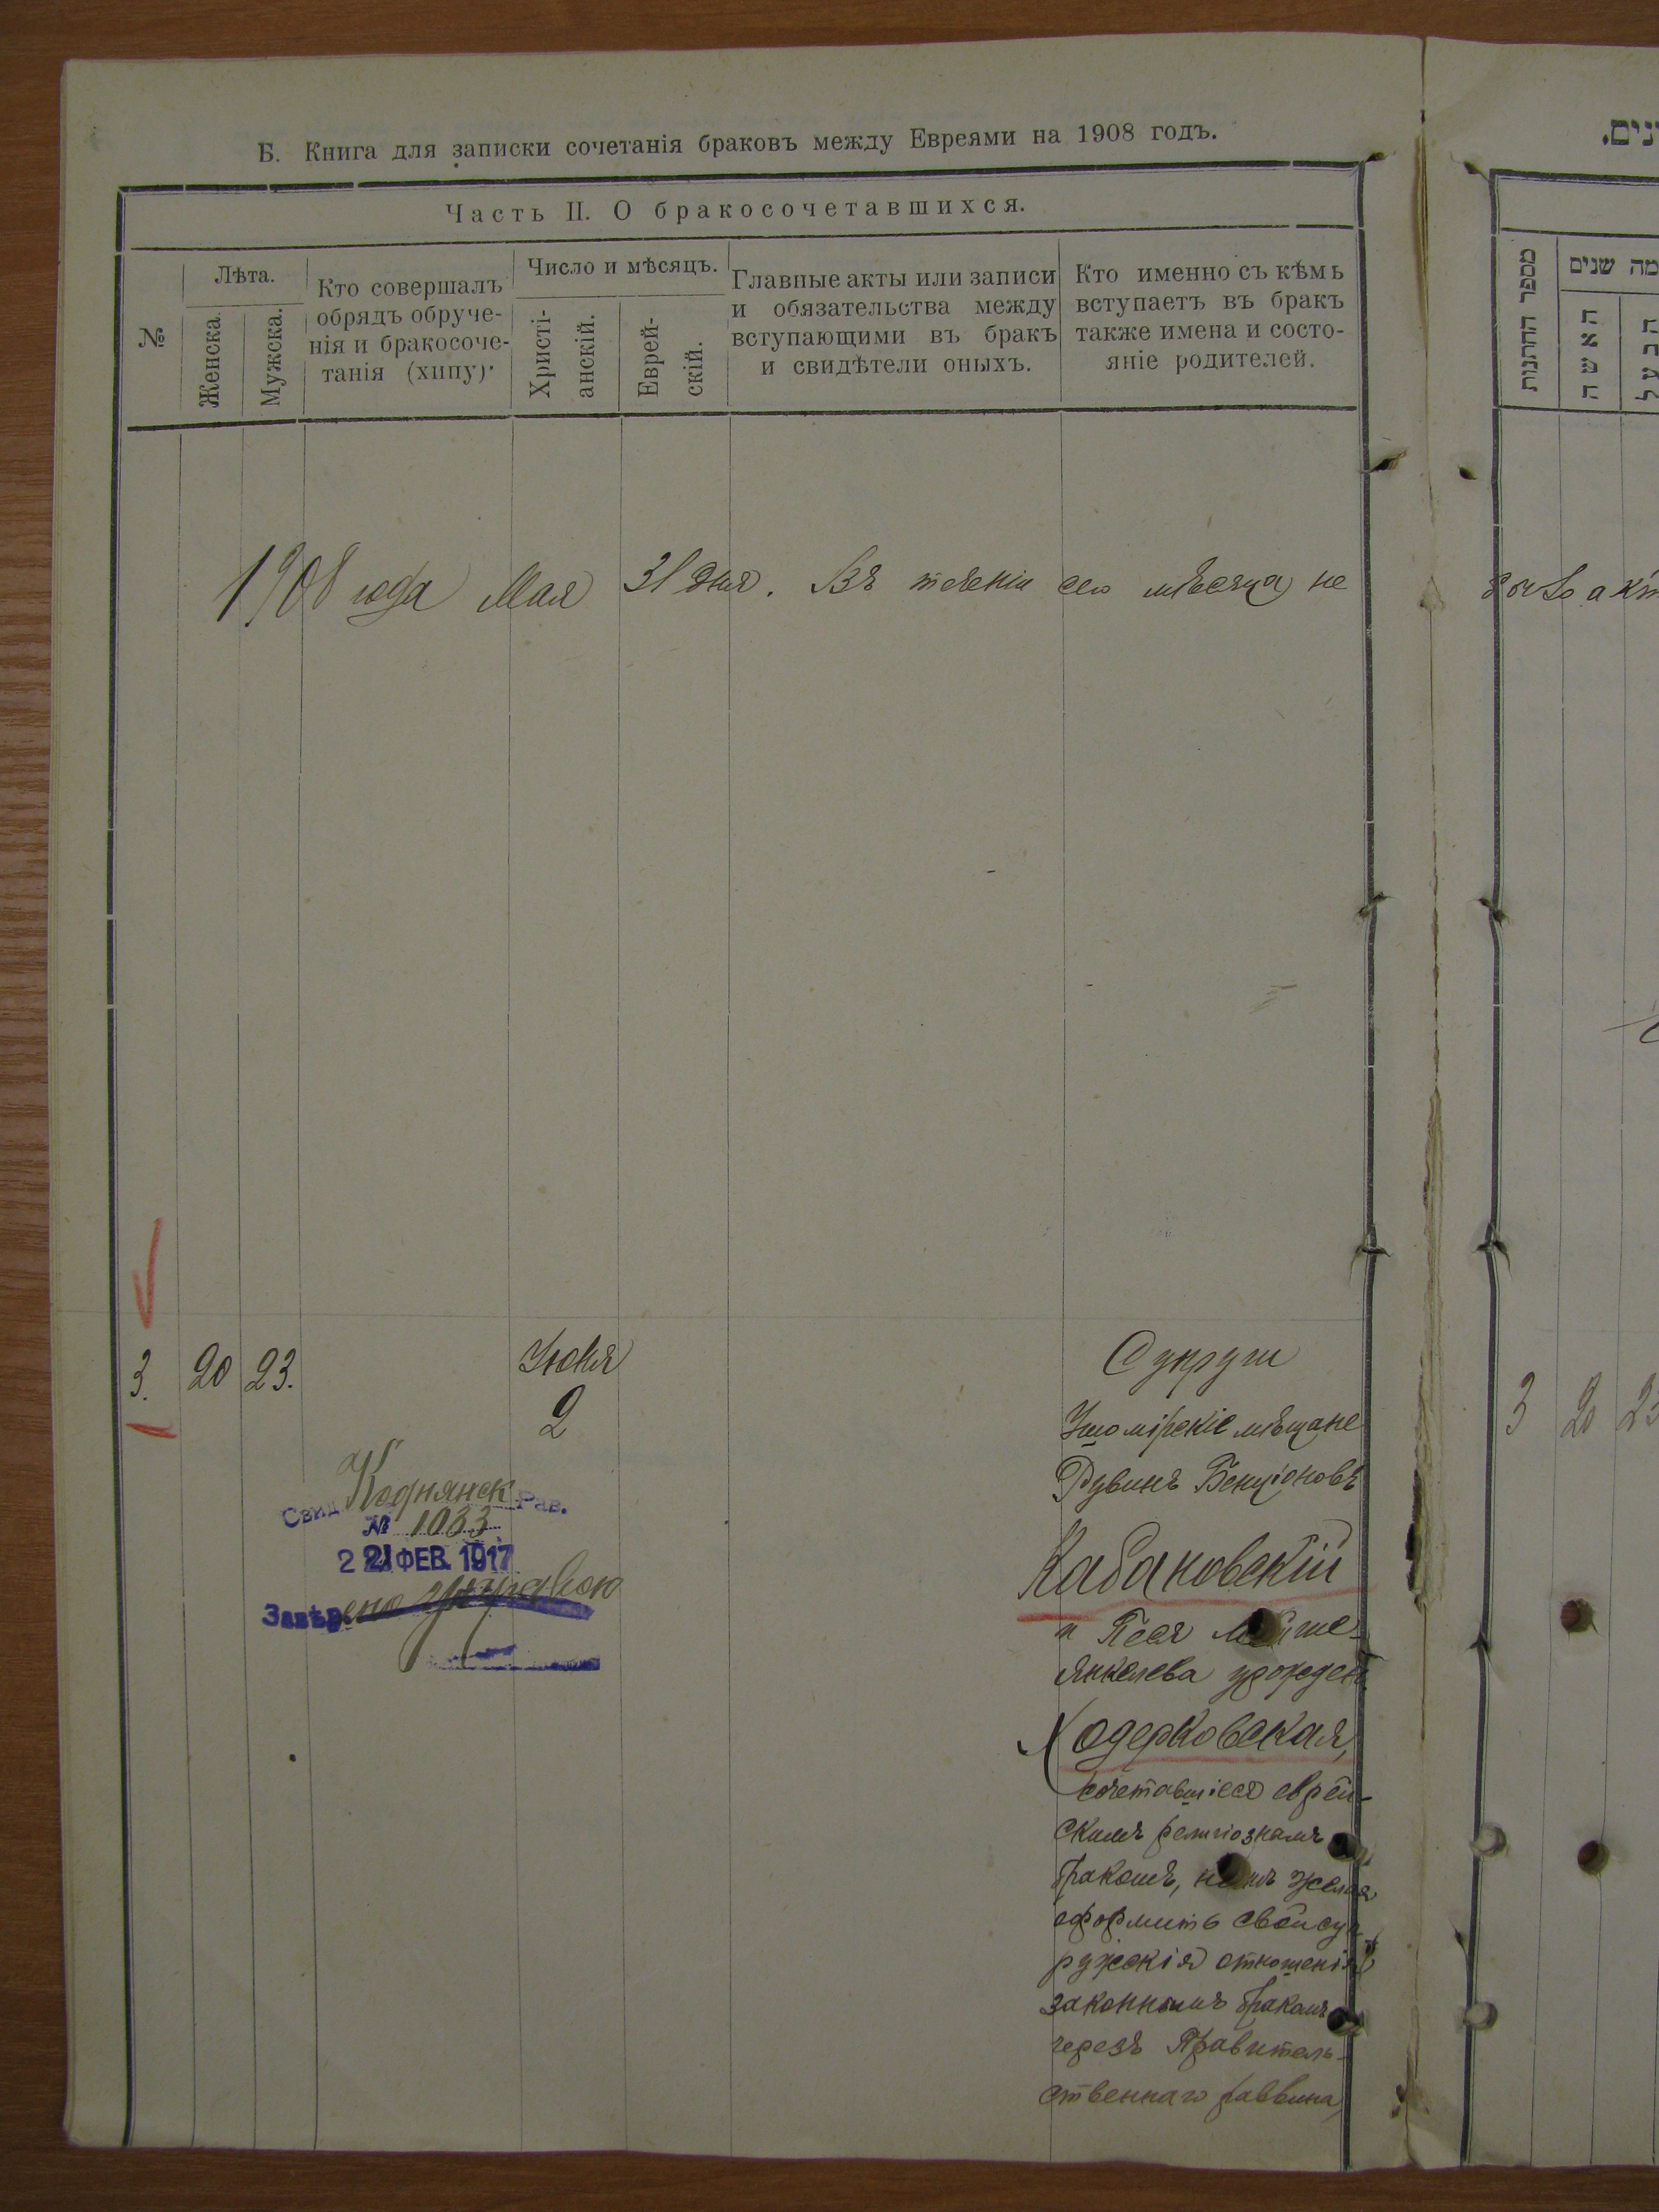 Б. Книга для записки сочетанія браковъ между Евреями на 1908 годъ.
Часть II. О бракосочетавшихся.
№
Лѣта.
Женска.
Мужска.
Кто совершалъ
обрядъ обруче-
нія и бракосоче-
танія (хипу).
Число и мѣсяцъ.
Христі-
анскій.
Еврей-
скій.
Главные акты или записи
и обязательства между
вступающими въ бракъ
и свидѣтели оныхъ.
Кто именно съ кѣмъ
вступаетъ въ бракъ
также имена и состо-
яніе родителей.
1908 года Мая 31 дня. Въ теченіи сего мѣсяца не
3. 20 23.
Іюня
2
Свид Коднянск Рав.
№ 1033
21 ФЕВ. 1917
Супруги
Ушомірскіе мѣщане
Рувинъ Бенціоновъ
Кабановскій
и Песя
Янкелева урожден.
Ходерковская,
сочетавшіеся еврей-
скимъ религіознымъ
бракомъ, желая
оформить свои суп
ружескія отношенія
законнымъ бракомъ
черезъ Правитель-
ственнаго раввина,
מספר החתונות
מה שנים
האשה
הבעל
3 20 23